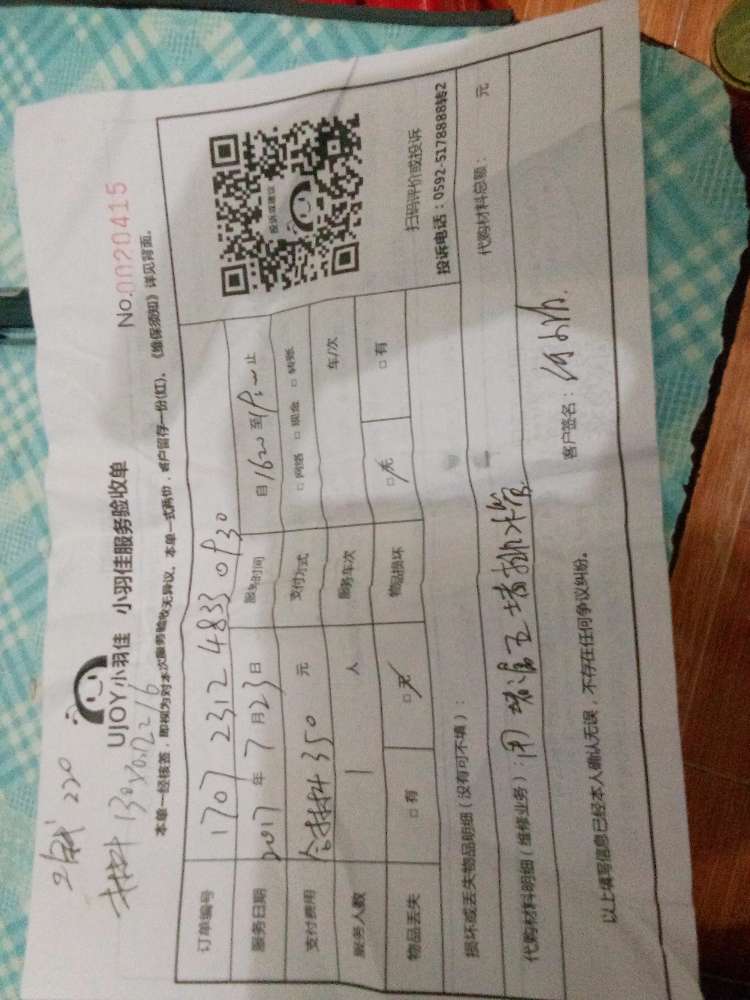 220
UJOY小羽佳 小羽佳服务验收单
No.0020415
本单一经核签，即视为对本次服务验收无异议。本单一式两份，客户留存一份(红)。《维保须知》详见背面。
订单编号 1707 2312 4833 0930
服务日期 2017 年 7 月 23 日 服务时间 自 1620 至 止
支付费用 含材料 350 元 支付方式 □ 网络 □ 现金 □ 转账
服务人数 1 人 服务车次 车/次
物品丢失 □ 有 □ 无 物品损坏 □ 无 □ 有
投诉或建议
扫码评价或投诉
投诉电话：0592-5178888转2
损坏或丢失物品明细（没有可不填）：
代购材料明细（维修业务）： 代购材料总额： 元
客户签名：
以上填写信息已经本人确认无误，不存在任何争议纠纷。